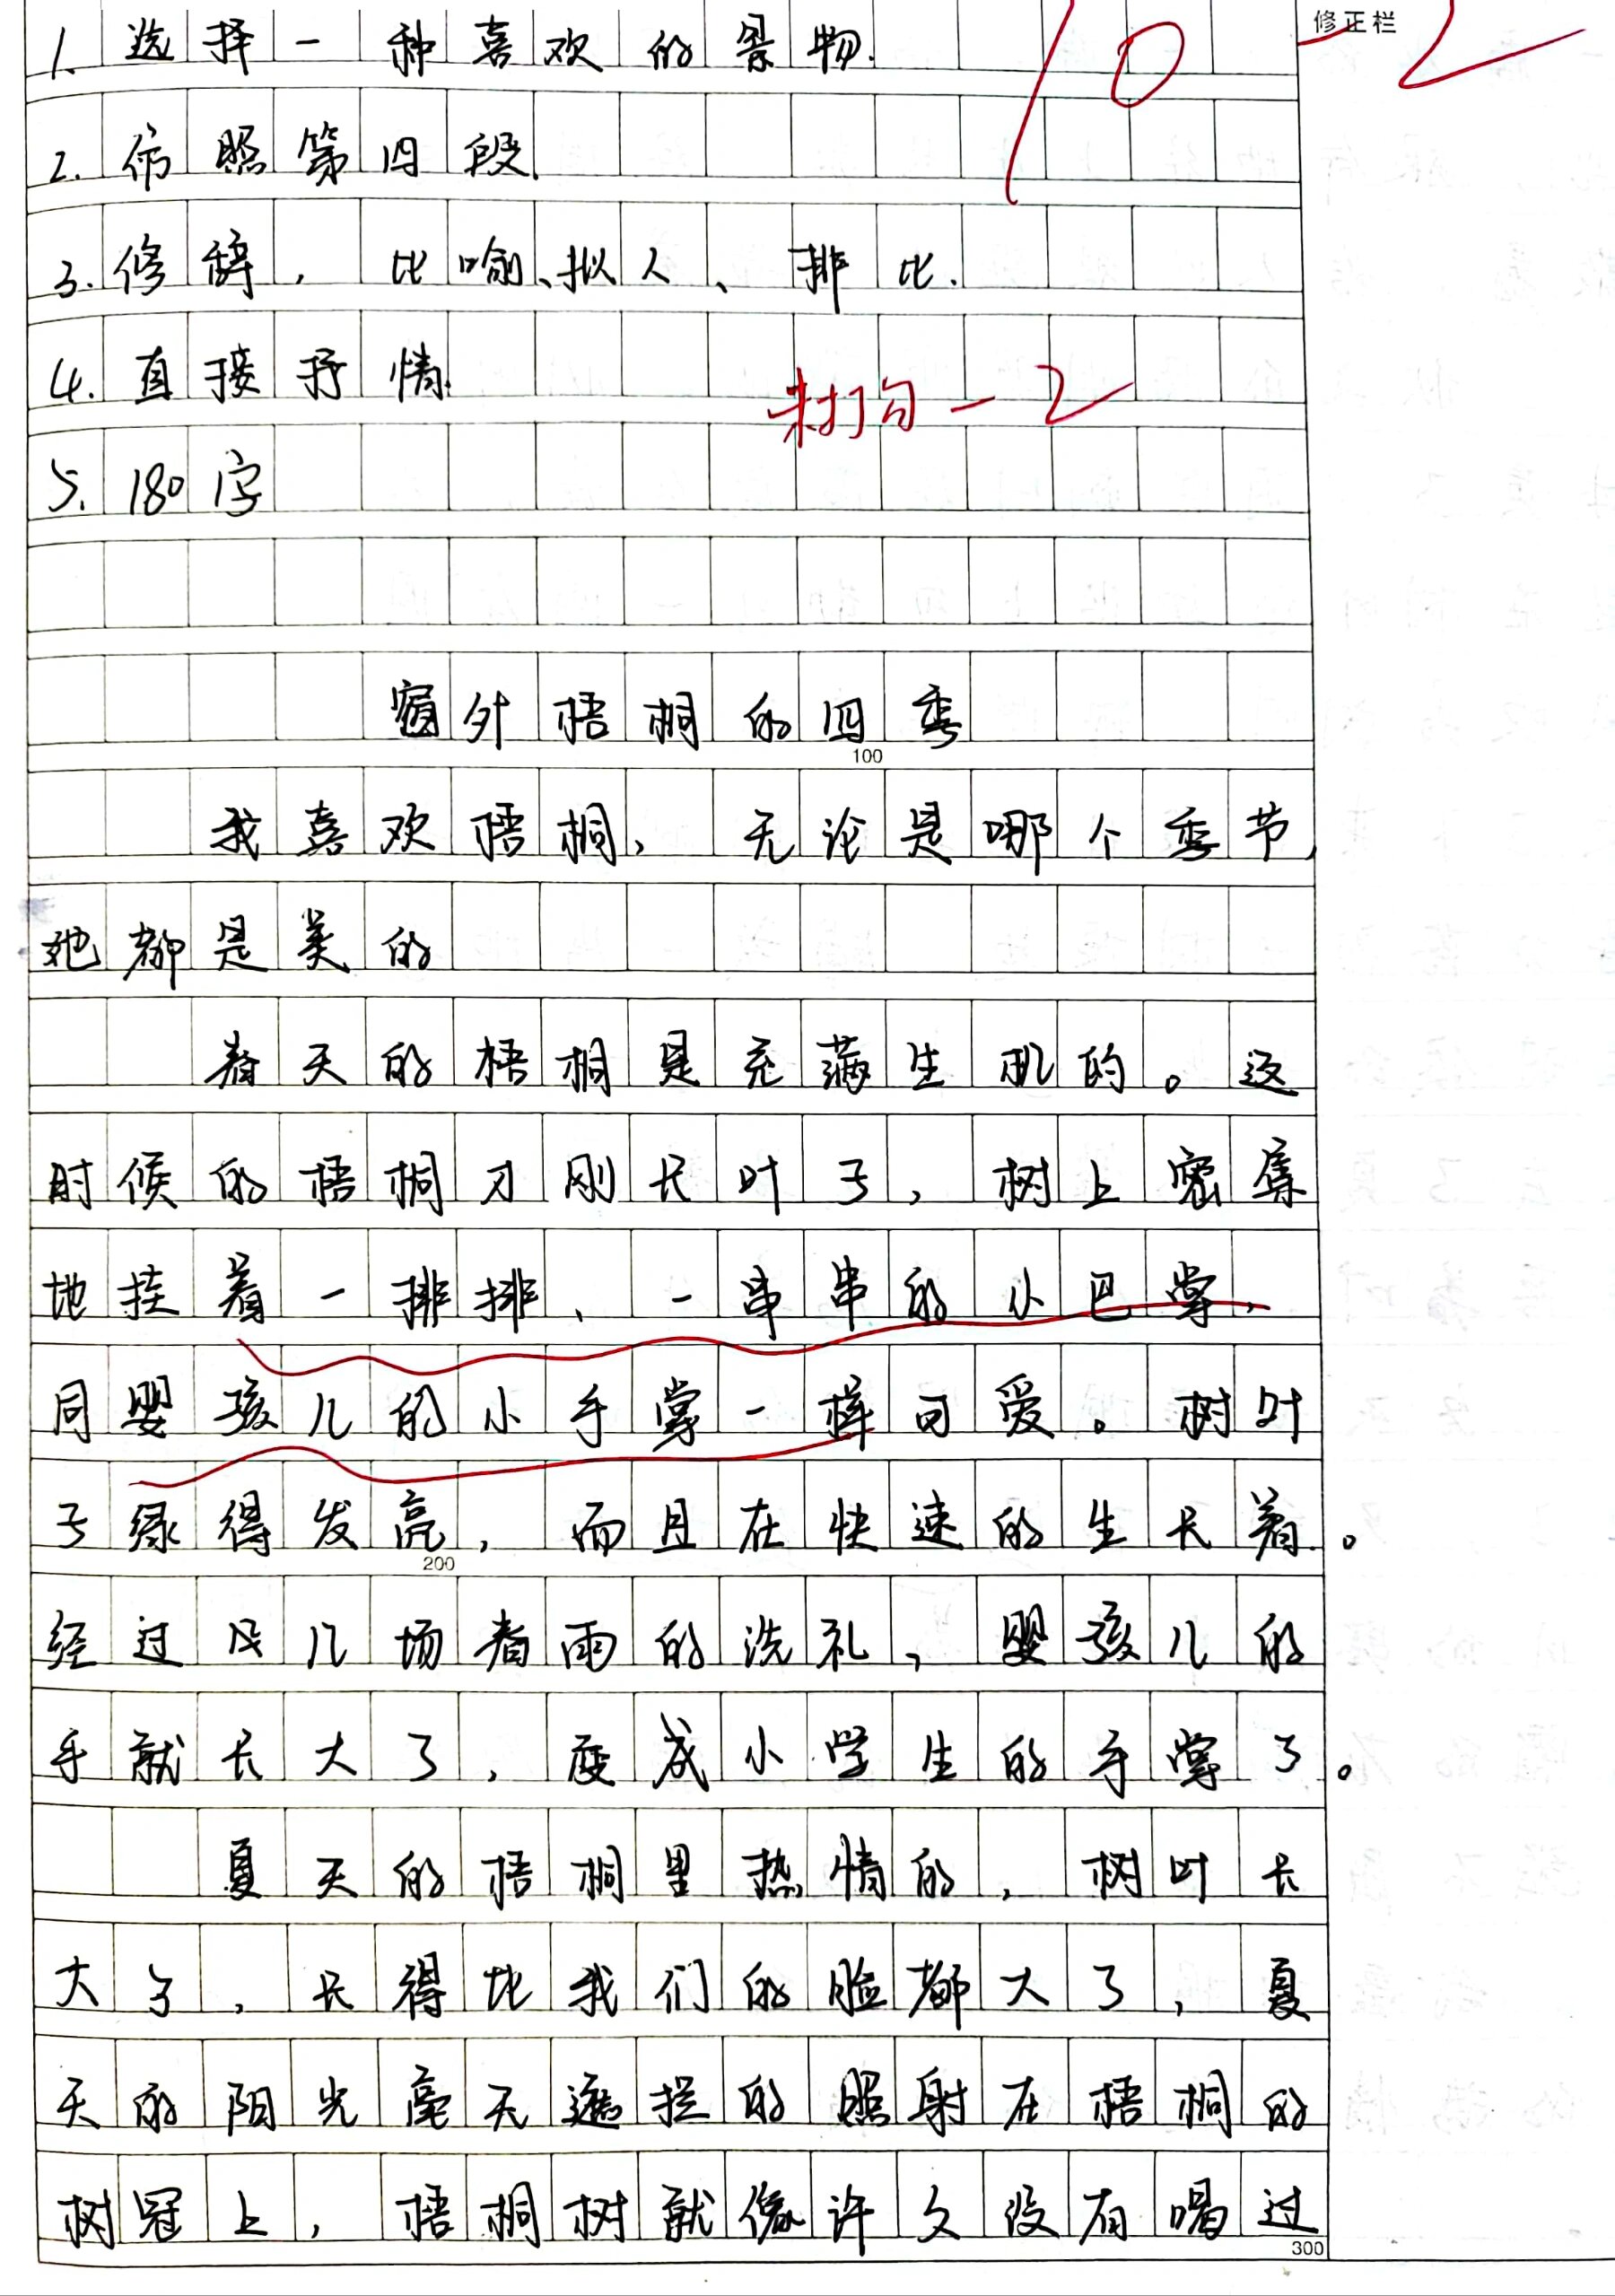 1. 选择一种喜欢的景物.
10 -2
修正栏
2. 仿照第四段
3. 修辞, 比喻、拟人、排比.
4. 直接抒情.
未打句-2
5. 180字
窗外梧桐的四季
100
我喜欢梧桐, 无论是哪个季节,
她都是美的
春天的梧桐是充满生机的。这
时候的梧桐才刚长叶子, 树上密集
地挂着一排排、一串串的小巴掌,
同婴孩儿的小手掌一样可爱。树叶
子绿得发亮, 而且在快速的生长着。
200
经过几场春雨的洗礼, 婴孩儿的
手就长大了, 变成小学生的手掌了。
夏天的梧桐里热情的, 树叶长
大了, 长得比我们的脸都大了, 夏
天的阳光毫无遮拦的照射在梧桐的
树冠上, 梧桐树就像许久没有喝过
300